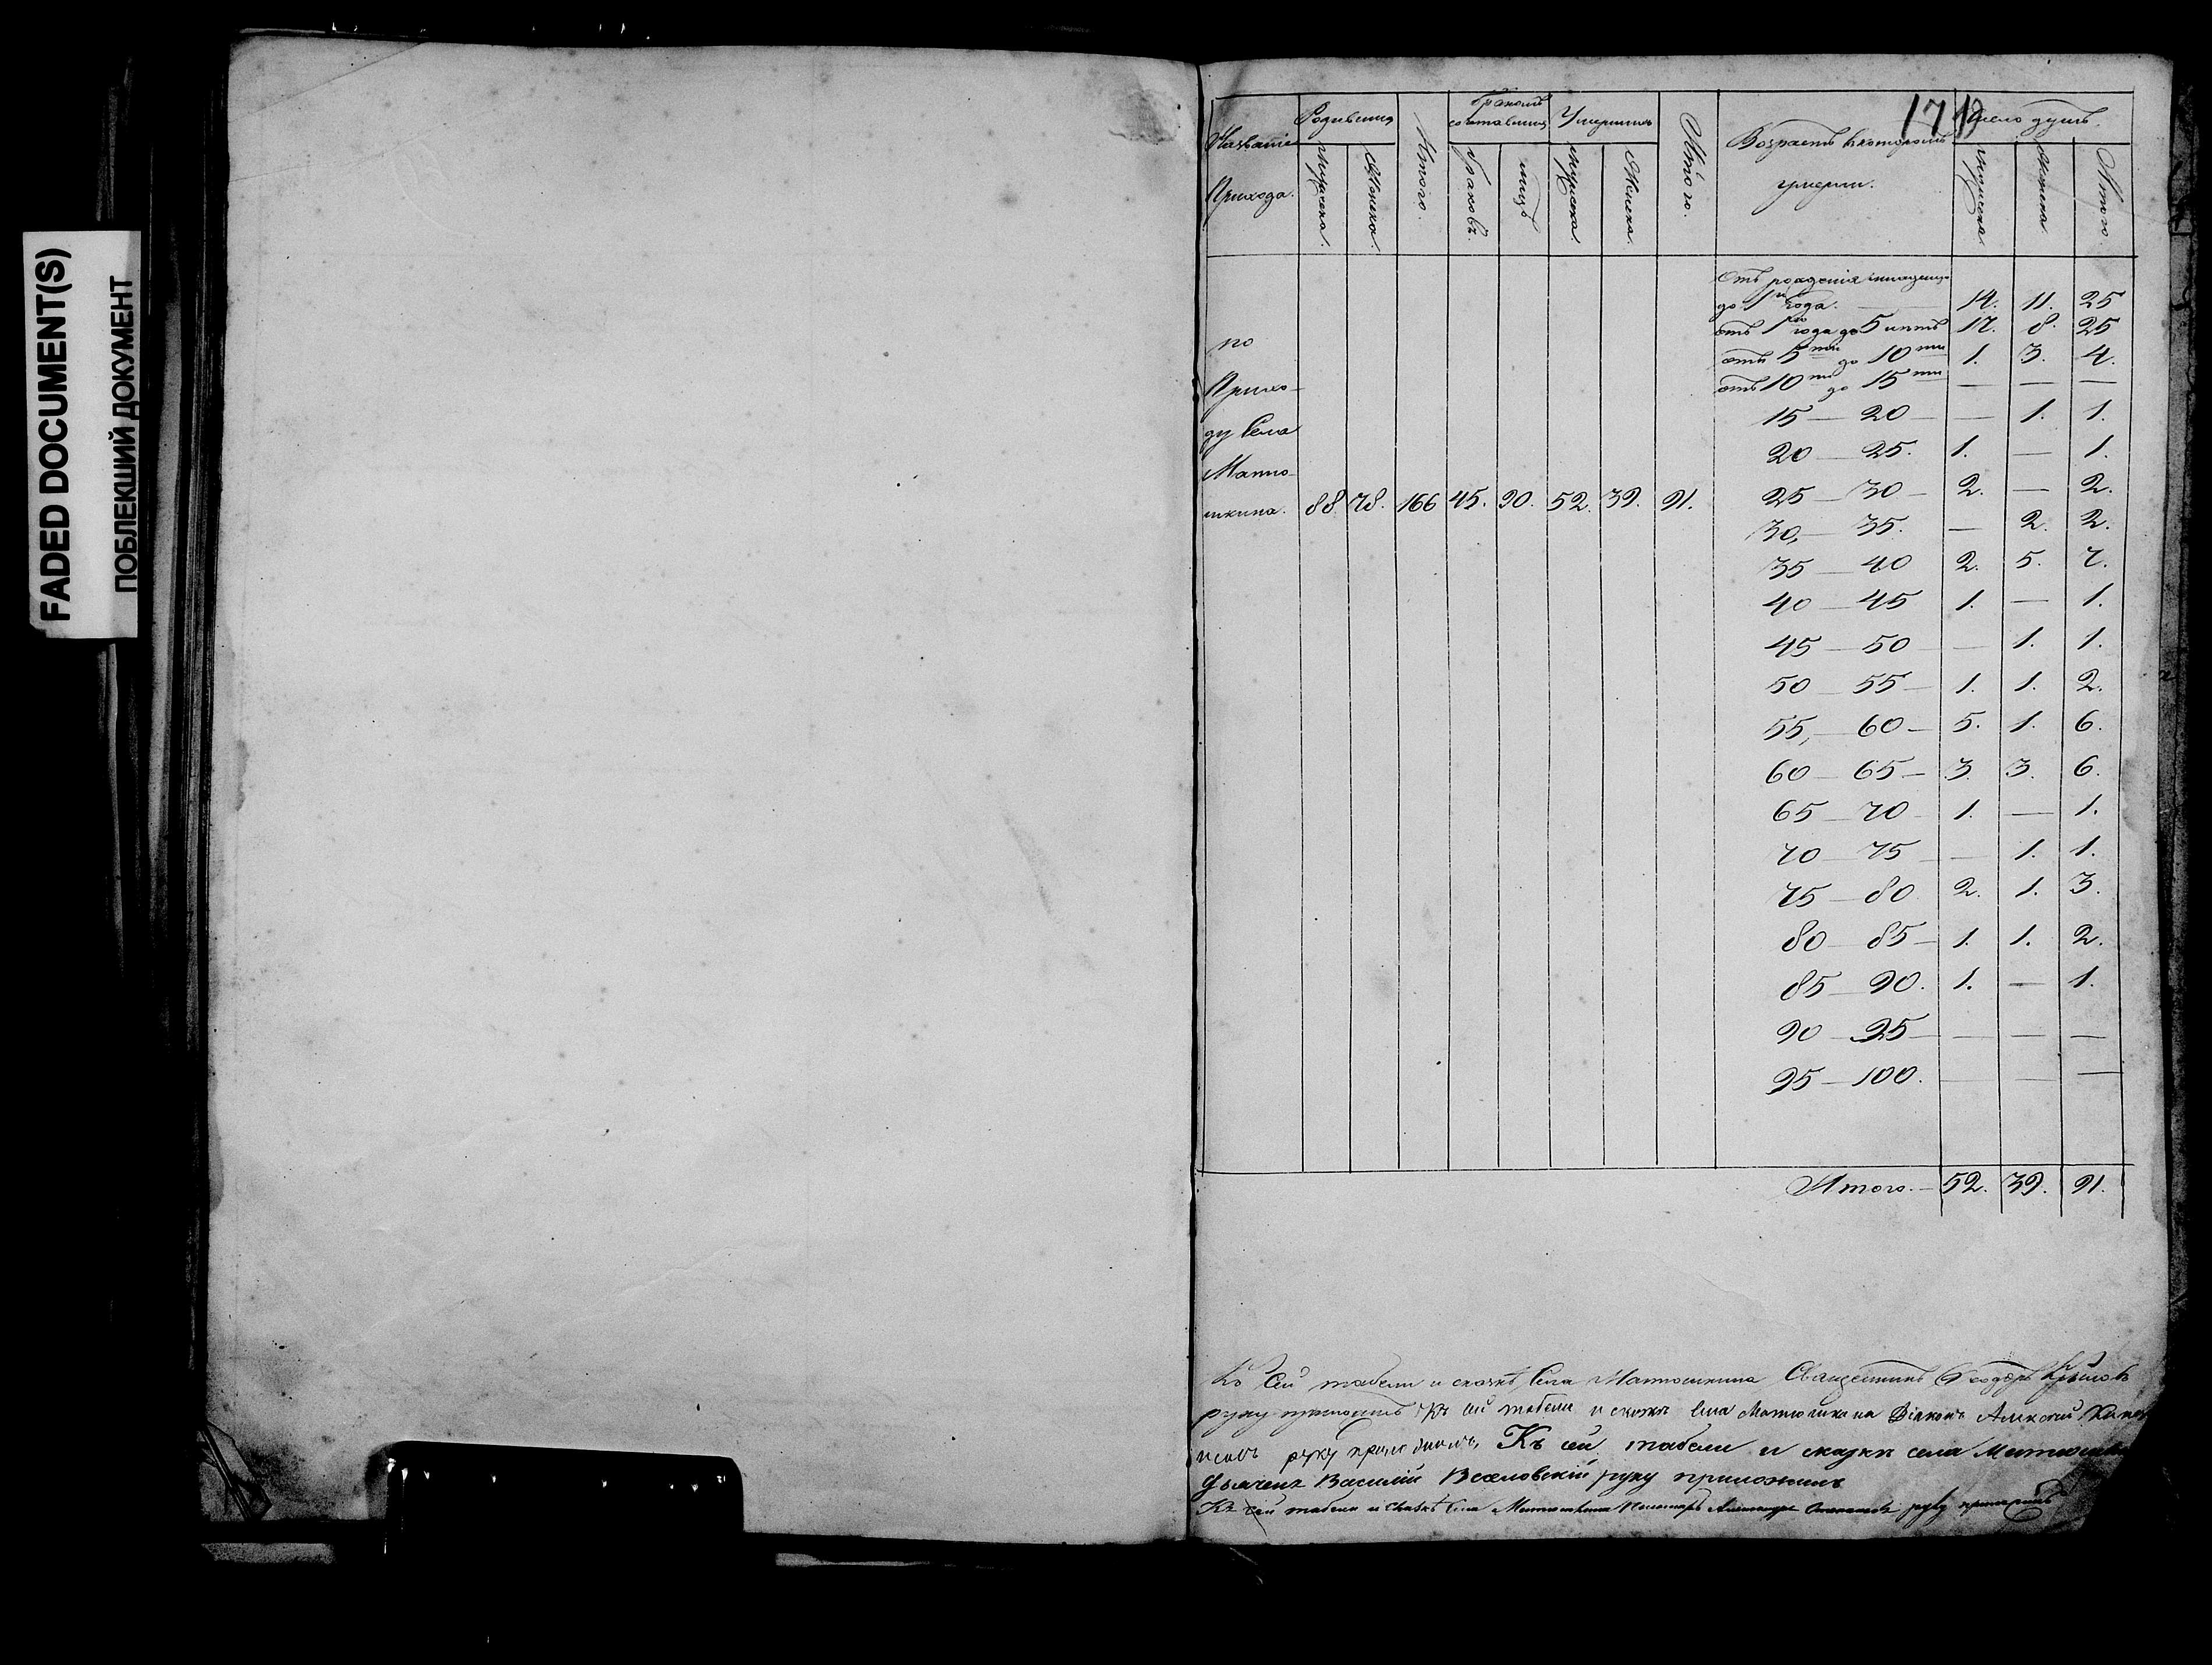 FADED DOCUMENT(S)
ПОБЛЕКШИЙ ДОКУМЕНТ
17
Названіе Прихода.
Родившихся
Мужеска.
Женска.
Итого.
Бракомъ сочетавшихся
Браковъ.
лицъ
Умершихъ
Мужеска.
Женска.
Итого.
Возрастъ въ которомъ умерли.
Число душъ.
Мужеска.
Женска.
Итого.
отъ рожденія младенцы
до 1го года. — 14. 11. 25
отъ 1го года до 5 лѣтъ 17. 8. 25
отъ 5ти до 10ти 1. 3. 4.
отъ 10ти до 15ти — — —
15 — 20 — — 1. 1.
20 — 25. 1. — 1.
25 — 30 — 2. — 2.
30, — 35. — 2. 2.
35 — 40 2. 5. 7.
40 — 45 1. — 1.
45 — 50 — 1. 1.
50 — 55 — 1. 1. 2.
55, — 60 — 5. 1. 6.
60 — 65 — 3. 3. 6.
65 — 70 1. — 1.
70 — 75 — 1. 1.
75 — 80 2. 1. 3.
80 — 85 — 1. 1. 2.
85 — 90. 1. — 1.
90 — 95 — — —
95 — 100. — — —
по
Прихо-
ду Села
Матю-
шкина. 88. 78. 166 45. 90. 52. 39. 91.
Итого. — 52. 39. 91.
Къ сей табели и сказкѣ Села Матюшкина Священникъ Ѳеодоръ
руку приложилъ Къ сей табели и сказкѣ села Матюшкина Діаконъ Алексей
руку приложилъ Къ сей табели и сказки села
Дьячекъ Василій Веселовскій руку приложилъ
Къ сей табели и сказкѣ Села Матюшкина Пономарь Александръ руку приложилъ